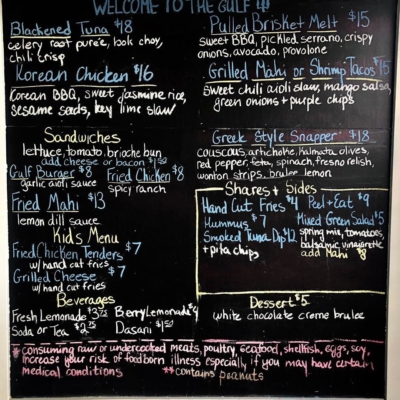 WELCOME TO THE GULF
Blackened Tuna $18
celery root pureé, bok choy,
chili crisp
Korean Chicken $16
Korean BBQ, sweet jasmine rice,
sesame seeds, key lime slaw
Pulled Brisket Melt $15
sweet BBQ, pickled serrano, crispy
onions, avocado, provolone
Grilled Mahi or Shrimp Tacos $15
sweet chili aioli slaw, mango salsa,
green onions + purple chips
Sandwiches
lettuce, tomato, brioche bun
add cheese or bacon $1.50
Gulf Burger $8
garlic aioli sauce
Fried Chicken $8
spicy ranch
Fried Mahi $13
lemon dill sauce
Kids Menu
Fried Chicken Tenders $7
w/ hand cut fries
Grilled Cheese $7
w/ hand cut fries
Beverages
Fresh Lemonade $3.75
Berry Lemonade $4
Soda or Tea $2.75
Dasani $1.50
Greek Style Snapper $18
couscous, artichoke, kalmata olives,
red pepper, feta, spinach, fresno relish,
wonton strips, brulee lemon
Shares + Sides
Hand Cut Fries $4
Peel + Eat $9
Hummus $7
Mixed Green Salad $5
Smoked Tuna Dip $12
+ pita chips
spring mix, tomatoes,
balsamic vinaigrette
add Mahi $8
Dessert $5
white chocolate creme brulee
* consuming raw or undercooked meats, poultry, seafood, shellfish, eggs, soy,
increase your risk of foodborn illness especially if you may have certain
medical conditions
** contains peanuts